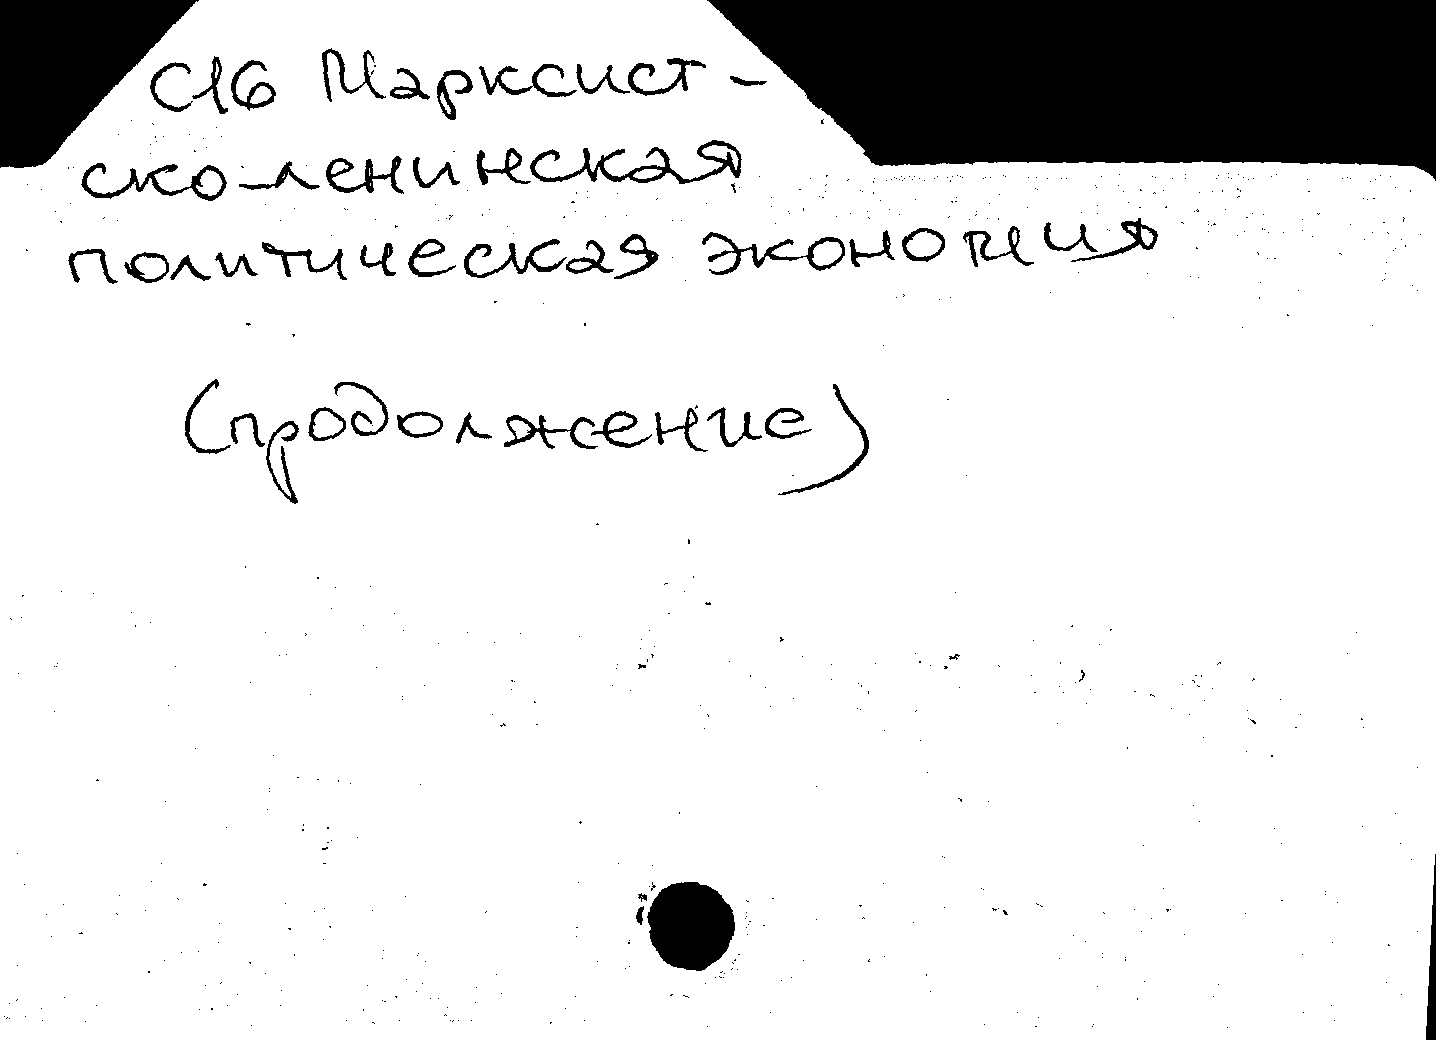 С16 Марксист-
ско-ленинская
политическая экономия
(продолжение)